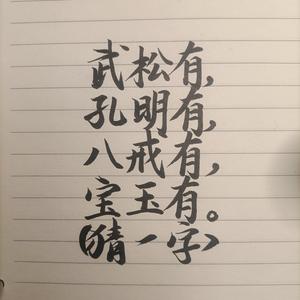 武松有,
孔明有,
八戒有,
宝玉有。
(猜一字)